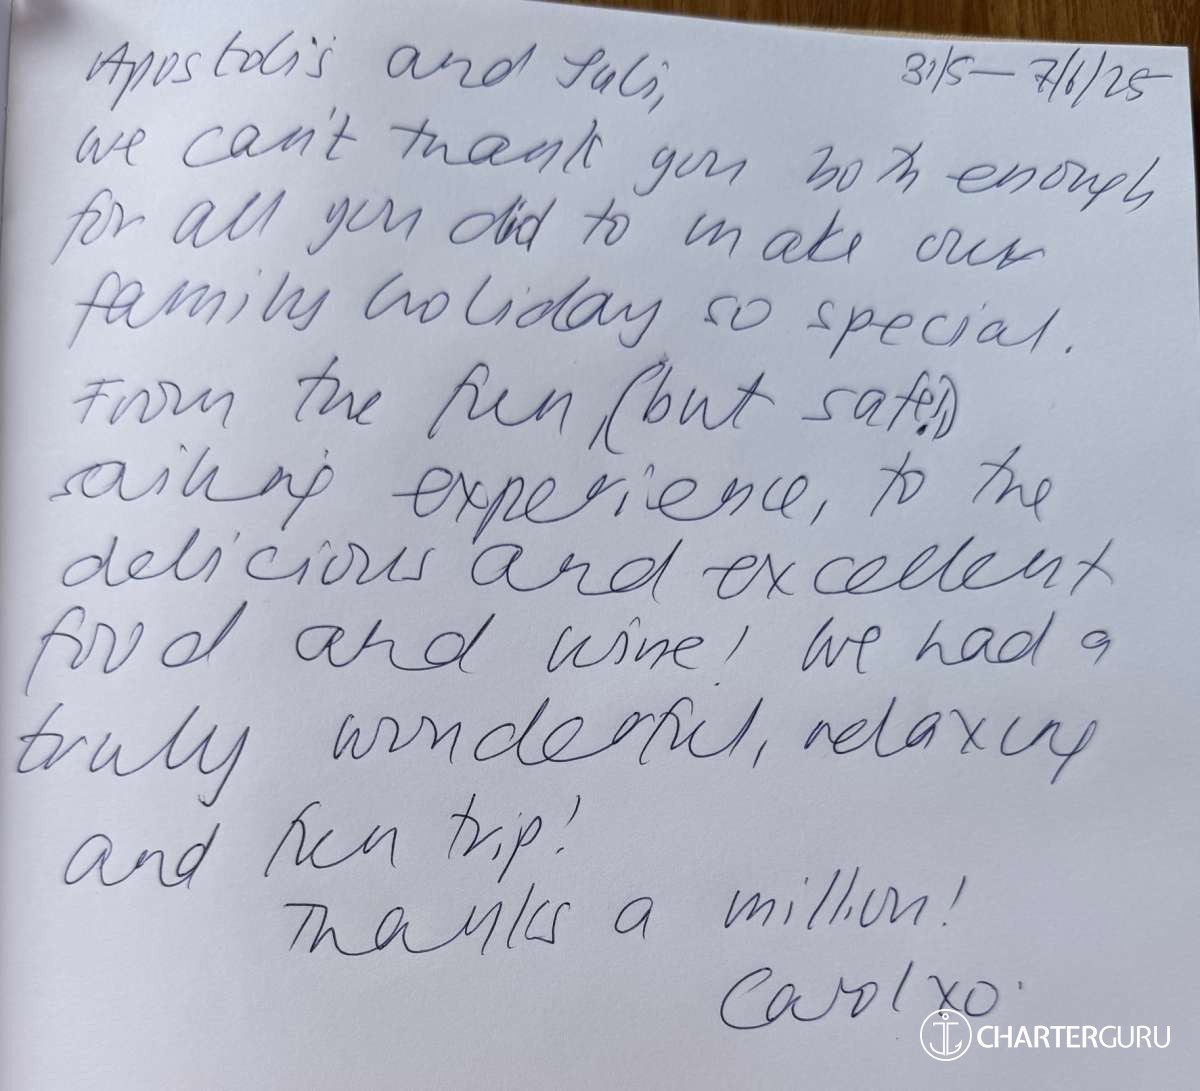 Apostolis and Juli,
31/5 — 7/6/25
we can't thank you both enough
for all you did to make our
family holiday so special.
From the fun, (but safe!)
sailing experience, to the
delicious and excellent
food and wine! We had a
truly wonderful, relaxing
and fun trip!
Thanks a million!
Carol xo
CHARTERGURU